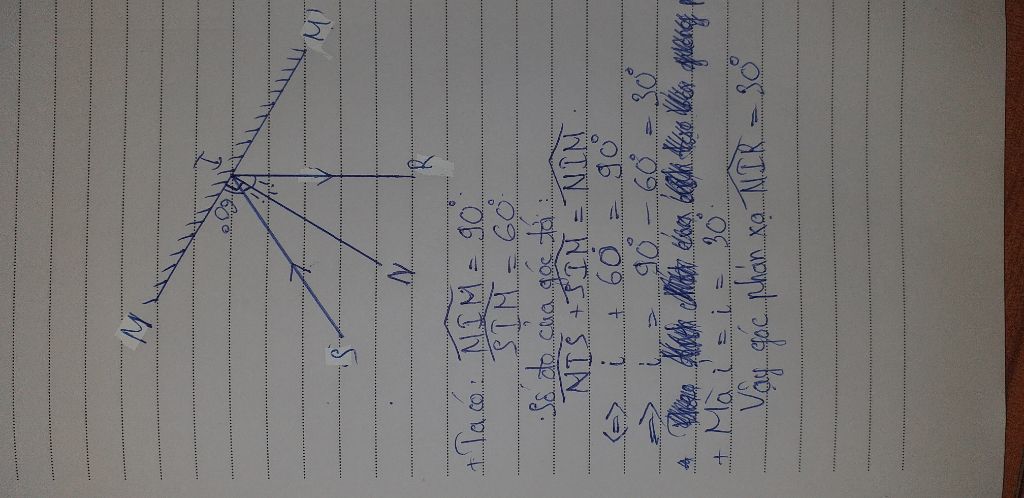 M
I
M'
60°
i
i'
S
N
R
+ Ta có: NIM = 90°
SIM = 60°
Số đo của góc tới:
NIS + SIM = NIM
<=> i + 60° = 90°
=> i = 90° - 60° = 30°
+ Mà i' = i = 30°
Vậy góc phản xạ NIR = 30°